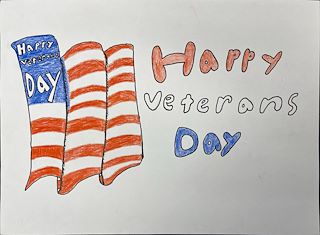 Happy
Veterans
Day
Happy
Veterans
Day